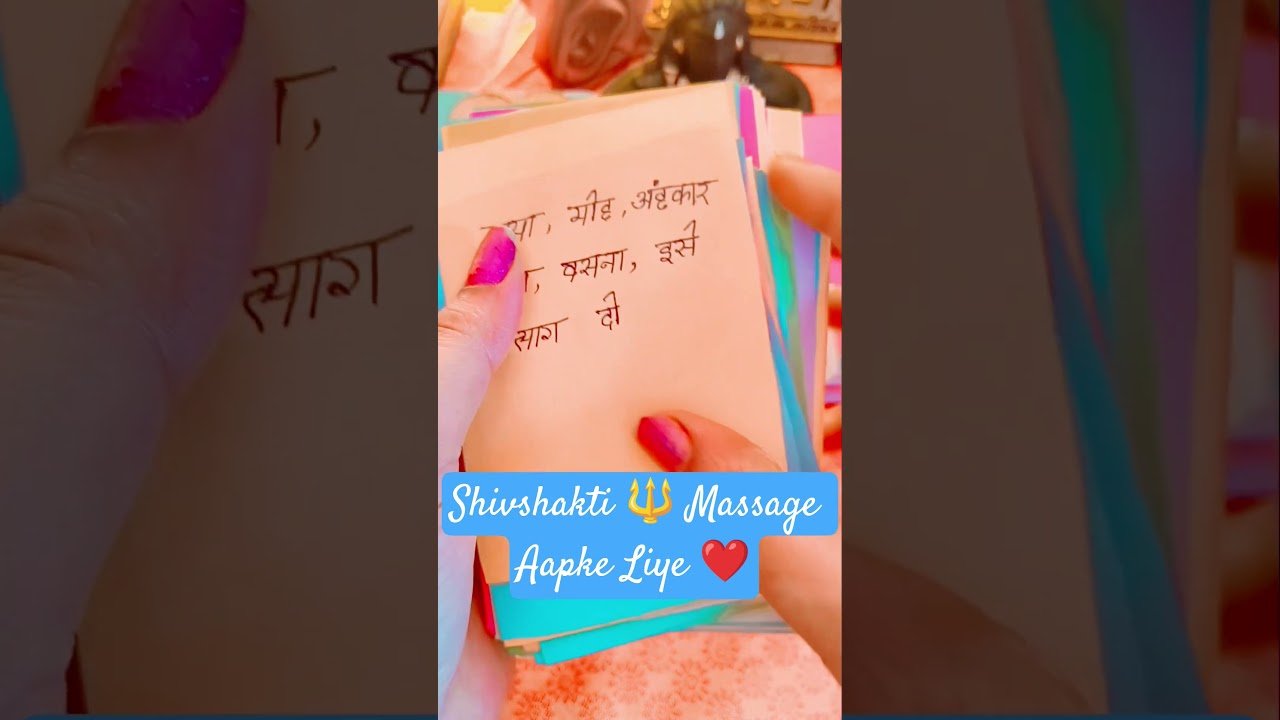 मोह, अंहकार
बसना, इसे
त्याग दो
Shivshakti 🔱 Massage
Aapke Liye ❤️